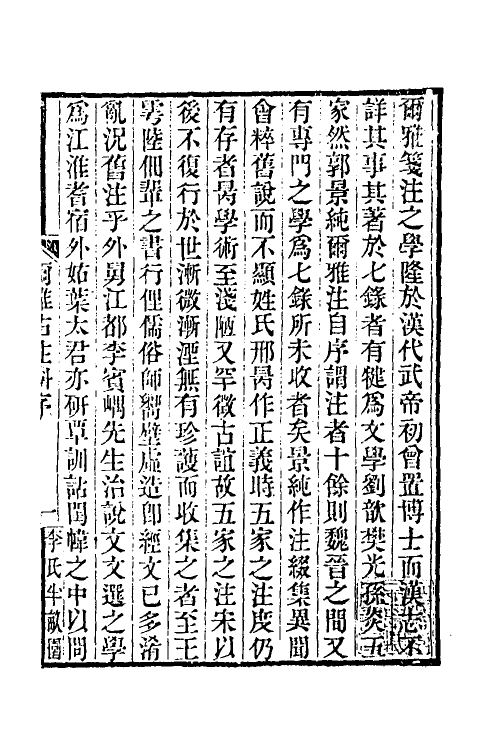 爾雅箋注之學隆於漢代武帝初曾置博士而漢志不
詳其事其著於七錄者有犍爲文學劉歆樊光孫炎五
家然郭景純爾雅注自序謂注者十餘則魏晉之間又
有專門之學爲七錄所未收者矣景純作注綴集異聞
會粹舊說而不顯姓氏邢昺作正義時五家之注度仍
有存者昺學術至淺陋又罕徵古誼故五家之注宋以
後不復行於世漸微漸湮無有珍護而收集之者至王
雱陸佃輩之書行俚儒俗師嚮壁虛造卽經文已多淆
亂況舊注乎外舅江都李賓嵎先生治說文文選之學
爲江淮耆宿外姑葉太君亦研覃訓詁閨幃之中以問
爾雅古注斠序
一
李氏半畝園